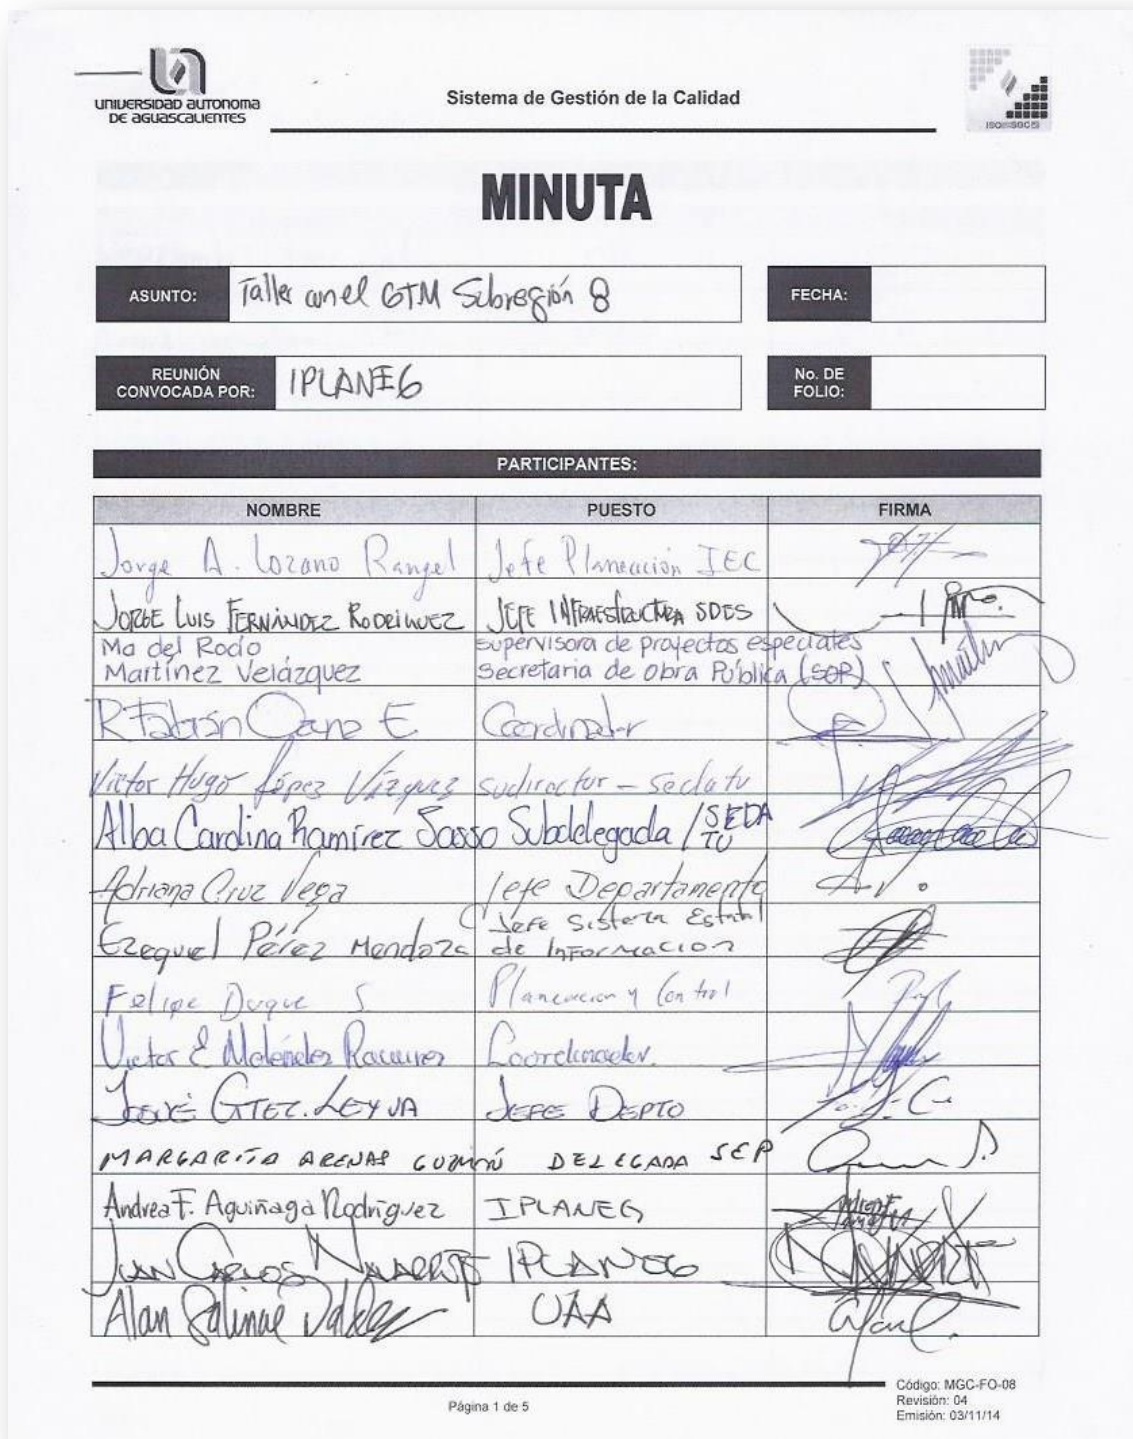 UNIVERSIDAD AUTONOMA
DE AGUASCALIENTES
Sistema de Gestión de la Calidad
MINUTA
ASUNTO: Taller con el GTM Subregión 8
FECHA:
REUNIÓN
CONVOCADA POR: IPLANEG
No. DE
FOLIO:
PARTICIPANTES:
NOMBRE PUESTO FIRMA
Jorge A. Lozano Rangel Jefe Planeación IEC
JORGE LUIS FERNÁNDEZ RODRIGUEZ JEFE INFRAESTRUCTURA SDES
Ma del Rocío
Martínez Velázquez
supervisora de proyectos especiales
Secretaria de Obra Pública (SOP)
R Fabián E. Coordinador
Victor Hugo López Vázquez subdirector - sedatu
Alba Carolina Ramírez Sasso Subdelegada / SEDA
TU
Adriana Cruz Vega Jefe Departamento
Ezequiel Pérez Mendoza
Jefe Sistema Estatal
de Información
Felipe Duque S. Planeacion y Control
Victor E. Meléndez Ramirez Coordinador.
JOSUÉ GTEZ. LEYVA JEFE DEPTO
MARGARITA ARENAS GUZMÁN DELEGADA SEP
Andrea F. Aguiñaga Rodríguez IPLANEG
JUAN CARLOS NAVARRETE IPLANEG
Alan Salinas UAA
Página 1 de 5
Código: MGC-FO-08
Revisión: 04
Emisión: 03/11/14